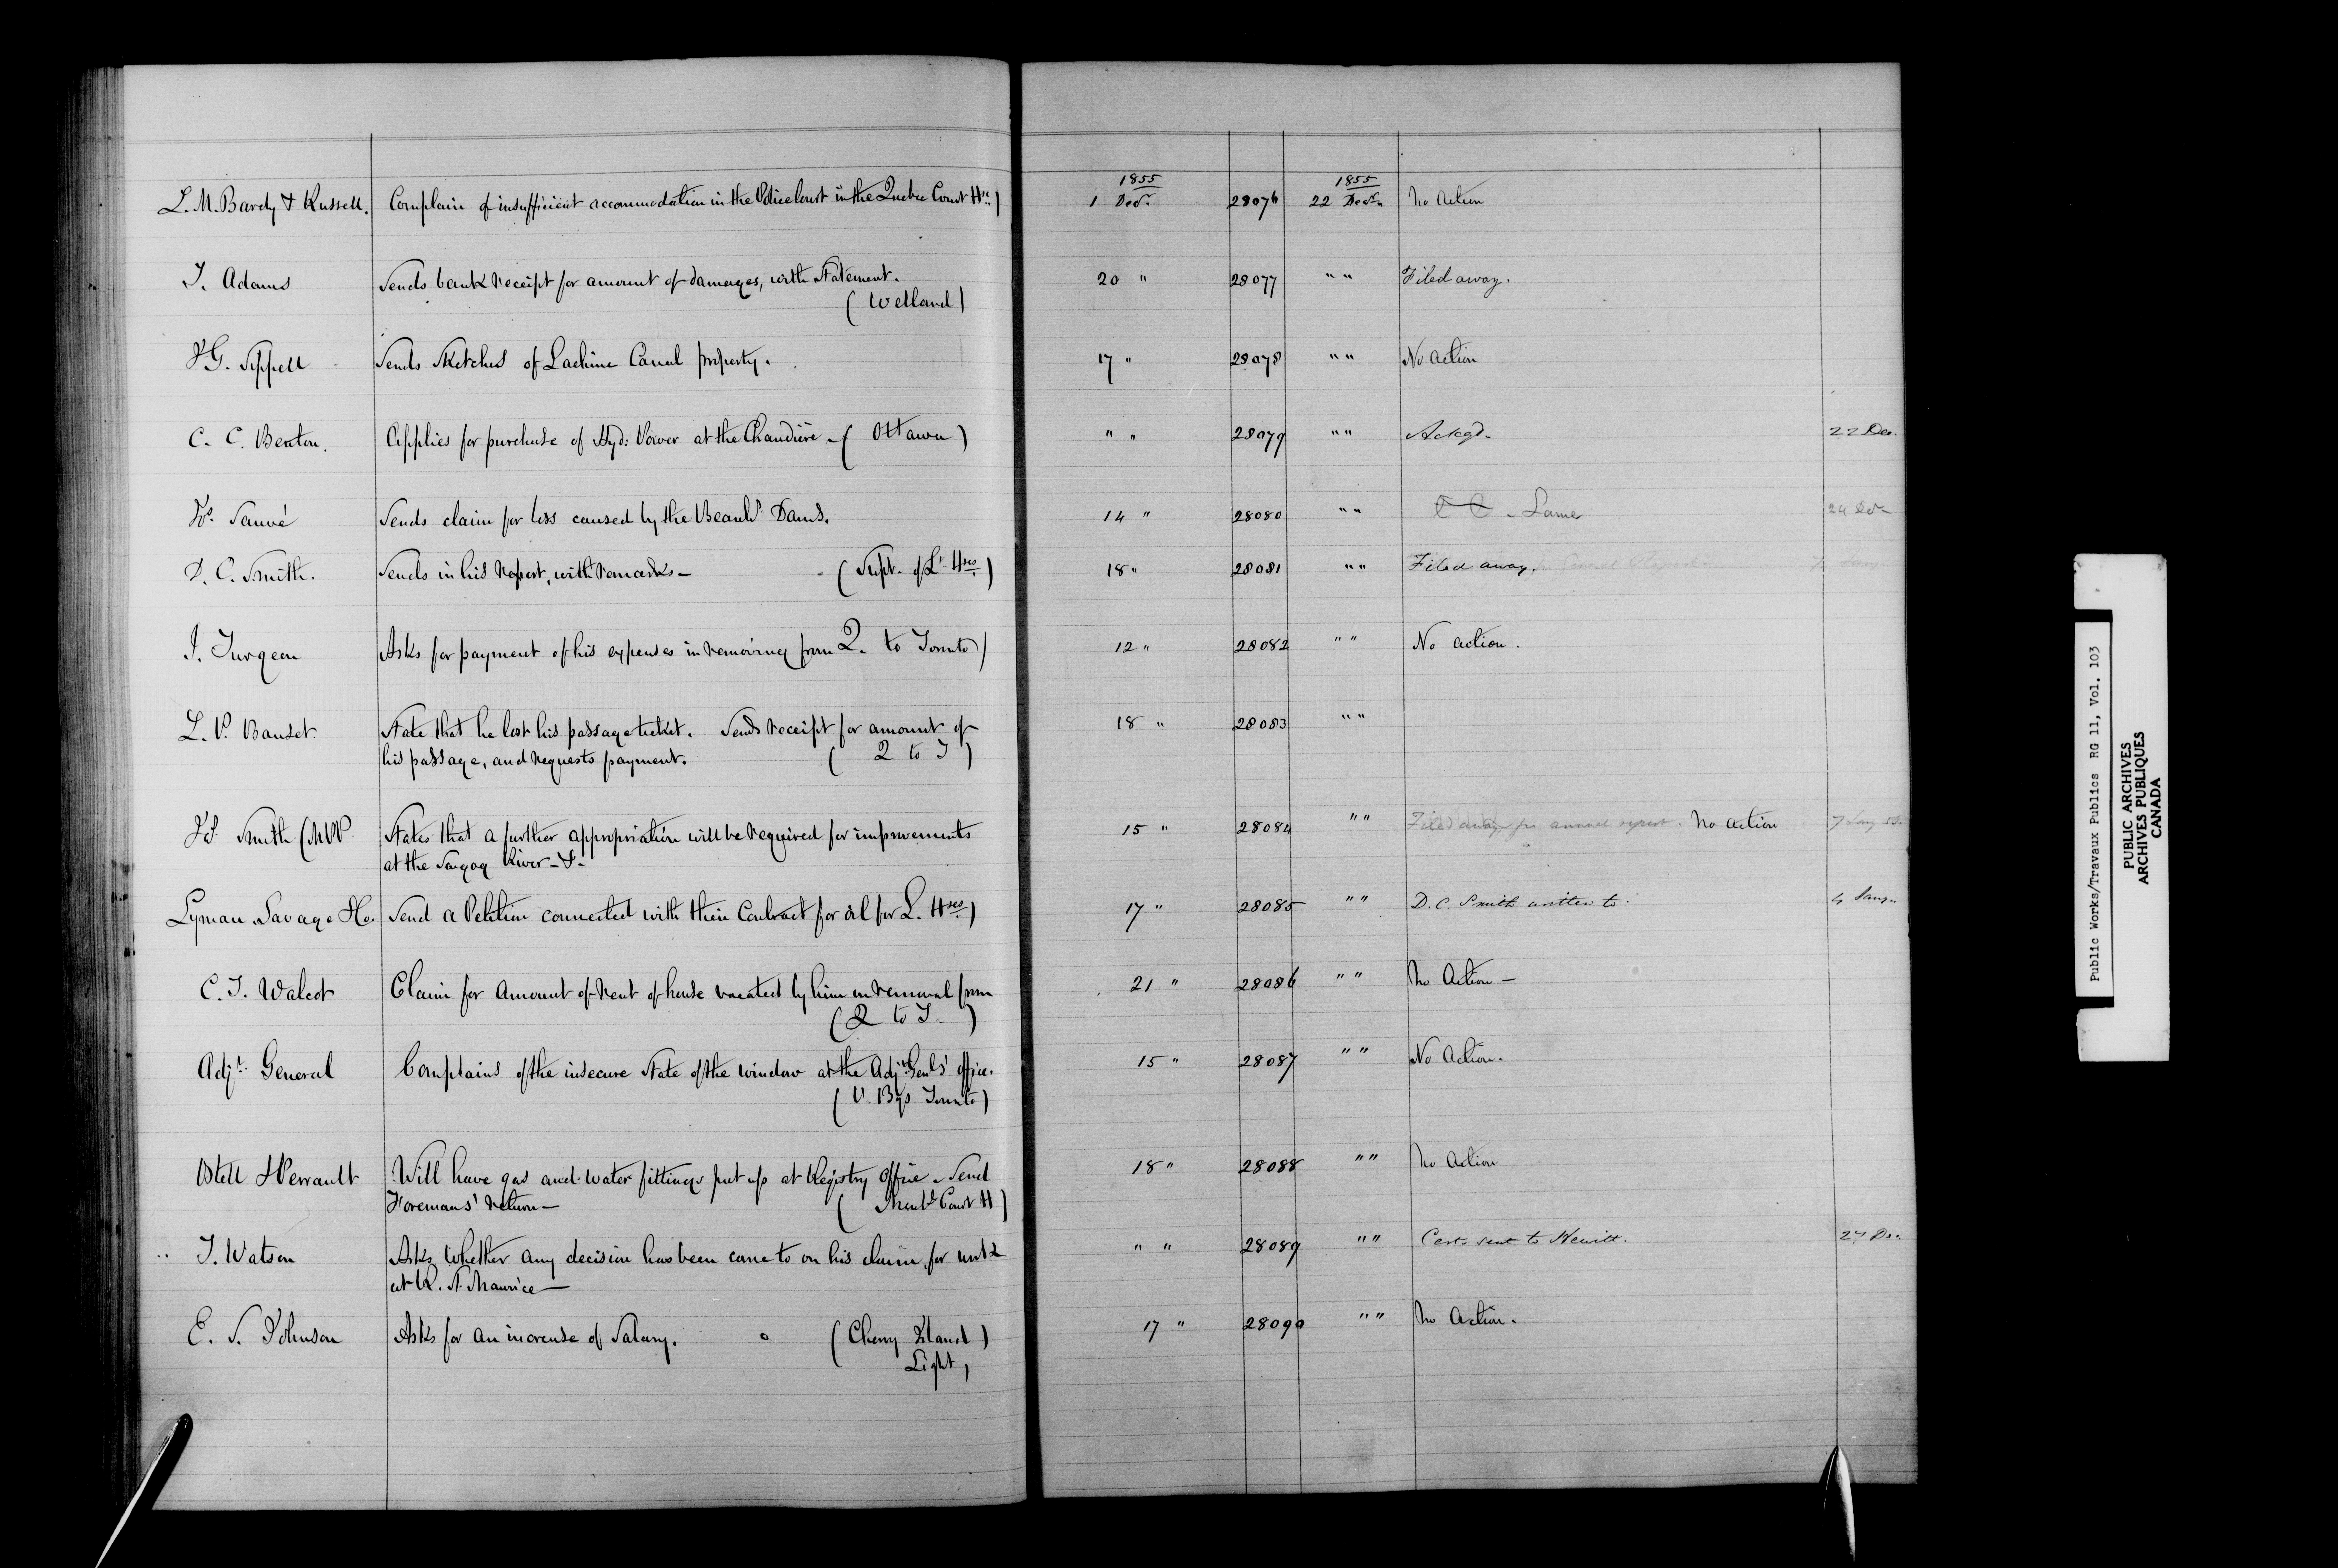 1855 1855
L. M. Bardy & Russell. Complain of insufficient accommodation in the Police Court in the Quebec Court Hse) 1 Decr 28076 22 Decr No Action
T. Adams Sends bank receipt for amount of damages, with Statement. 20 " 28077 " " Filed away.
( Welland )
J G. Sippell Sends Sketches of Lachine Canal property. 17 " 28078 " " No Action
C. C. Benton. Applies for purchase of Hyd: Power at the Chaudière - ( Ottawa ) " " 28079 " " Ackgd. 22 Dec.
Sauvé Sends claim for loss caused by the Beauhs Dams. 14 " 28080 " " Same 24 Dec
D. C. Smith. Sends in his Report, with remarks - ( Supt. of Lt. Hses ) 18 " 28081 " " Filed away. for General Report
J. Turgeon Asks for payment of his expenses in removing from Q. to Toronto) 12 " 28082 " " No action.
L. P. Bauset. State that he lost his passage ticket. Sends receipt for amount of 18 " 28083 " "
his passage, and requests payment. ( Q to T )
Smith (MPP States that a further appropriation will be required for improvements 15 " 28084 " " Filed away for annual report. No action 7 Jany
at the River - &-
Lyman Savage &Co. Send a Petition connected with their Contract for oil for L. Hses) 17 " 28085 " " D. C. Smith written to. 4 Jany.
C. T. Walcot Claim for Amount of rent of house vacated by him on removal from 21 " 28086 " " No Action -
( Q to T. )
Adjt. General Complains of the insecure State of the window at the Adjt. Genls' Office. 15 " 28087 " " No Action.
( P. Bgs Toronto )
Ostell & Perrault Will have gas and water fittings put up at Registry Office - Send 18 " 28088 " " No Action
Foremans' return - ( Montl Court H )
T. Watson Asks whether any decision has been come to on his claim for work " " 28089 " " Cert. sent to Hewitt. 27 De.
at R. St. Maurice -
E. S. Johnson Asks for an increase of Salary. ( Cherry Island ) 17 " 28090 " " No Action.
Light,
Public Works/Travaux Publics RG 11, Vol. 103
PUBLIC ARCHIVES
ARCHIVES PUBLIQUES
CANADA